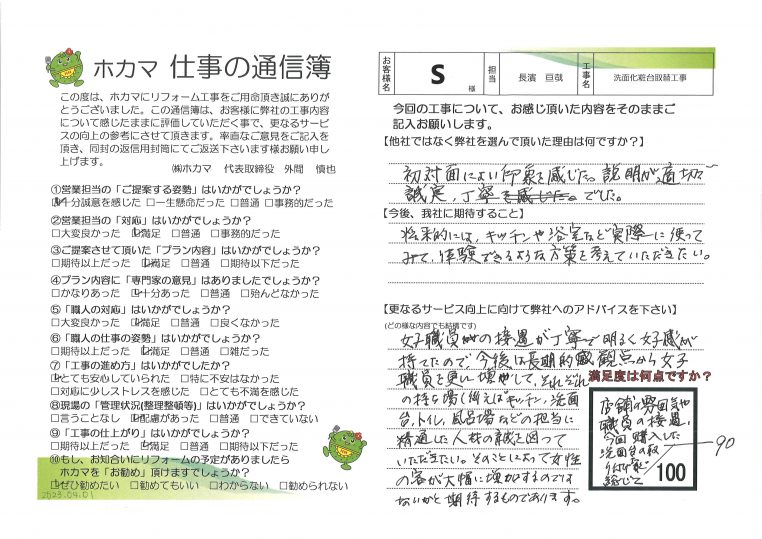 ホカマ 仕事の通信簿
この度は、ホカマにリフォーム工事をご用命頂き誠にありが
とうございました。この通信簿は、お客様に弊社の工事内容
について感じたままに評価していただく事で、更なるサービ
スの向上の参考にさせて頂きます。率直なご意見をご記入を
頂き、同封の返信用封筒にてご返送下さいます様お願い申し
上げます。
㈱ホカマ 代表取締役 外間 慎也
①営業担当の「ご提案する姿勢」はいかがでしょうか?
□十分誠意を感じた □一生懸命だった □普通 □事務的だった
②営業担当の「対応」はいかがでしょうか?
□大変良かった □満足 □普通 □事務的だった
③ご提案させて頂いた「プラン内容」はいかがでしょうか?
□期待以上だった □満足 □普通 □期待以下だった
④プラン内容に「専門家の意見」はありましたでしょうか?
□かなりあった □十分あった □普通 □殆んどなかった
⑤「職人の対応」はいかがでしょうか?
□大変良かった □満足 □普通 □良くなかった
⑥「職人の仕事の姿勢」はいかがでしょうか?
□期待以上だった □満足 □普通 □雑だった
⑦「工事の進め方」はいかがでしたか?
□とても安心していられた □特に不安はなかった
□対応に少しストレスを感じた □とても不満を感じた
⑧現場の「管理状況(整理整頓等)」はいかがでしょうか?
□言うことなし □配慮があった □普通 □できていない
⑨「工事の仕上がり」はいかがでしょうか?
□期待以上だった □満足 □普通 □期待以下だった
⑩もし、お知合いにリフォームの予定がありましたら
ホカマを「お勧め」頂けますでしょうか?
□ぜひ勧めたい □勧めてもいい □わからない □勧められない
2023.04.01
お客様名 S 様 担当 長濱 亘哉 工事名 洗面化粧台取替工事
今回の工事について、お感じ頂いた内容をそのままご
記入お願いします。
【他社ではなく弊社を選んで頂いた理由は何ですか?】
初対面によい印象を感じた。説明が適切で
誠実、丁寧を感じた。でした。
【今後、我社に期待すること】
将来的には、キッチンや浴室など実際に使って
みて、体験できるような方策を考えていただきたい。
【更なるサービス向上に向けて弊社へのアドバイスを下さい】
(どの様な内容でも結構です)
女子職員の接遇が丁寧で明るく好感が
持てたので今後は長期的観点から女子
職員を更に増加して、それぞれ
の持ち場(例えばキッチン、洗面
台、トイレ、風呂場などの担当に
精通した人材の育成を図って
いただきたい。そのことによって女性
の客が大幅に増加するのでは
ないかと期待するものであります。
満足度は何点ですか?
店舗の雰囲気や
職員の接遇、
今回購入した
洗面台の取
り付け等に
総じて
90
100